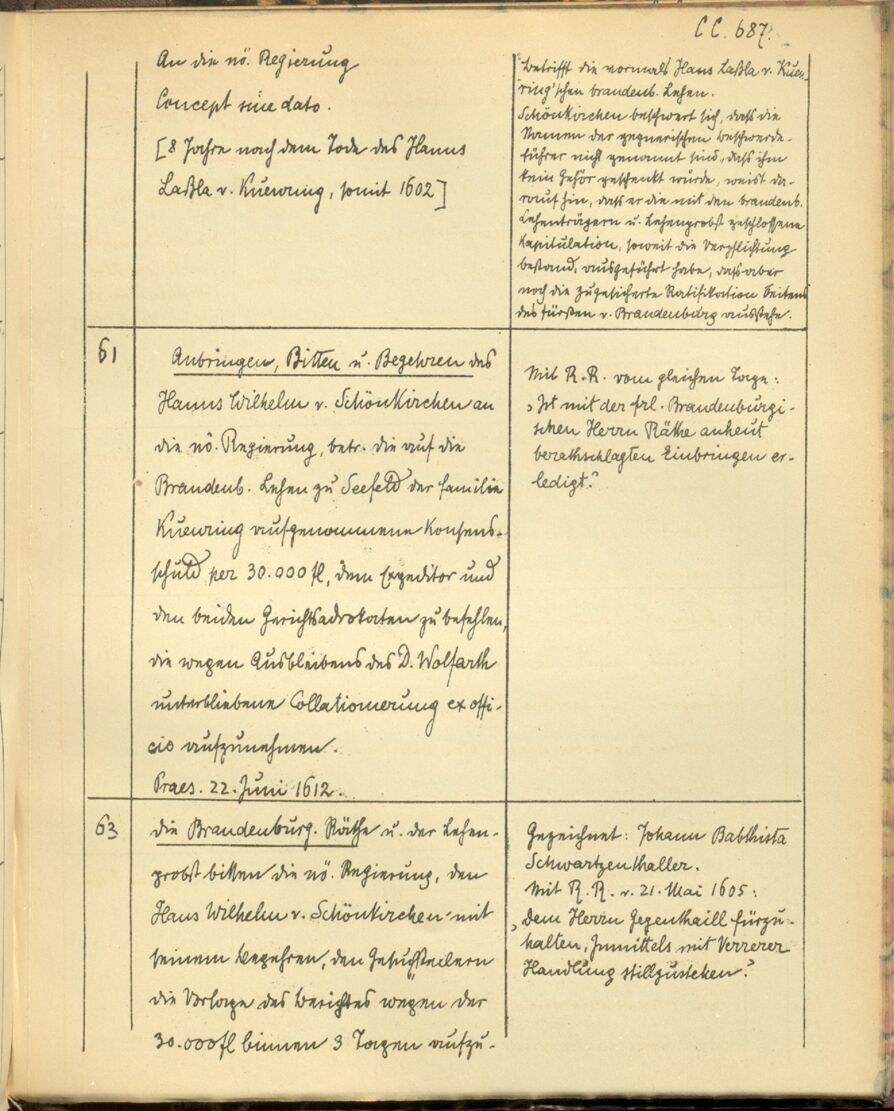 CC. 687.
An die nö. Regierung
Concept sine dato.
[8 Jahre nach dem Tode des Hanns
Laßla v. Kuenring, somit 1602]
betrifft die vormals Hans Laßla v. Kuen-
ring'schen brandenb. Lehen.
Schönkirchen beschwert sich, dass die
Namen der gegnerischen Beschwerde-
führer nicht genannt sind, dass ihm
kein Gehör geschenkt würde, weist da-
rauf hin, dass er die mit den brandenb.
Lehenträgern u. Lehenprobst geschlossene
Kapitulation, soweit die Verpflichtung
bestand, ausgeführt habe, dass aber
noch die zugesicherte Ratifikation Seitens
des Fürsten v. Brandenburg ausstehe.
61
Anbringen, Bitten u. Begehren des
Hanns Wilhelm v. Schönkirchen an
die nö. Regierung, betr. die auf die
Brandenb. Lehen zu Seefeld der Familie
Kuenring aufgenommene Konsens-
schuld per 30.000 fl, dem Expeditor und
den beiden Gerichtsadvokaten zu befehlen,
die wegen Ausbleibens des D. Wolfarth
unterbliebene Collationierung ex offi-
cio aufzunehmen.
Praes. 22. Juni 1612.
Mit R.R. vom gleichen Tage:
"Ist mit der frl. Brandenburgi-
schen Herrn Räthe anheut
berathschlagten Einbringen er-
ledigt."
63
Die Brandenburg. Räthe u. der Lehen-
probst bitten die nö. Regierung, den
Hans Wilhelm v. Schönkirchen mit
seinem Begehren, den Gesuchstellern
die Vorlage des Berichtes wegen der
30.000 fl binnen 3 Tagen aufzu-
Gezeichnet: Johann Babthista
Schwartzenthaller.
Mit R.R. v. 21. Mai 1605:
"Dem Herrn Gegenthaill fürzu-
halten, Inmittels mit Verrerer
Handlung stillzustehen."